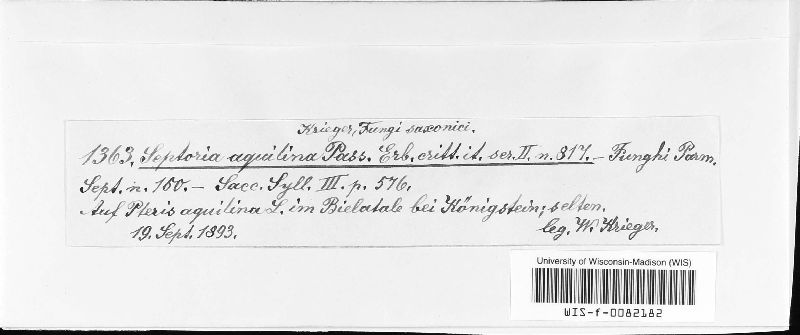 Krieger, Fungi saxonici.
1363. Septoria aquilina Pass. Erb. critt. it. ser. II. n. 817. – Funghi Parm.
Sept. n. 150. – Sacc. Syll. III. p. 576.
Auf Pteris aquilina L. im Bielatale bei Königstein; selten.
19. Sept. 1893. leg. W. Krieger.
University of Wisconsin-Madison (WIS)
WIS-f-0082182